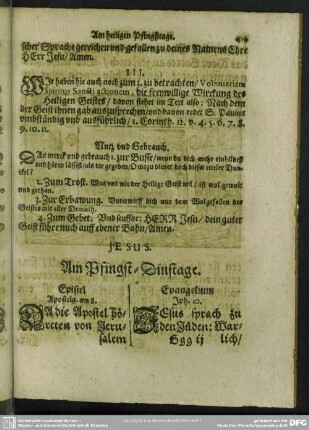 Am heiligen Pfingsttage.
scher Sprache gereichen und gefallen zu deines Namens Ehre
HErr Jesu/ Amen.
III.
WJr haben hie auch noch zum 3. zu betrachten/ Voluntariam
Spiritus Sancti actionem, die freywillige Wirckung des
Heiligen Geistes/ davon stehet im Text also: Nach dem
der Geist ihnen gab auszusprechen/ und davon redet S. Paulus
umbständig und ausführlich/ 1. Corinth. 12. v. 4. 5. 6. 7. 8.
9. 10. 11.
Nutz und Gebrauch.
DAs merck und gebrauch 1. zur Busse/ wenn du dich
und hören lässest als dir gegeben/ O wozu dienet doch dieser
ckel?
2. Zum Trost. Was und wie der Heilige Geist wil/ ist wol geredt
und gethan.
3. Zur Erbawung. Unterwirff dich nur dem Wolgefallen des
Geistes mit aller Demuth.
4. Zum Gebet. Und seuffze: HERR Jesu/ dein guter
Geist führe mich auff ebener Bahn/ Amen.
JESUS.
Am Pfingst-Dinstage.
Epistel
Apostelg. am 8.
DA die Apostel hö-
reten von Jeru-
salem
Evangelium
Joh. 10.
JEsus sprach zu
den Jüden: War-
Ggg ij lich/